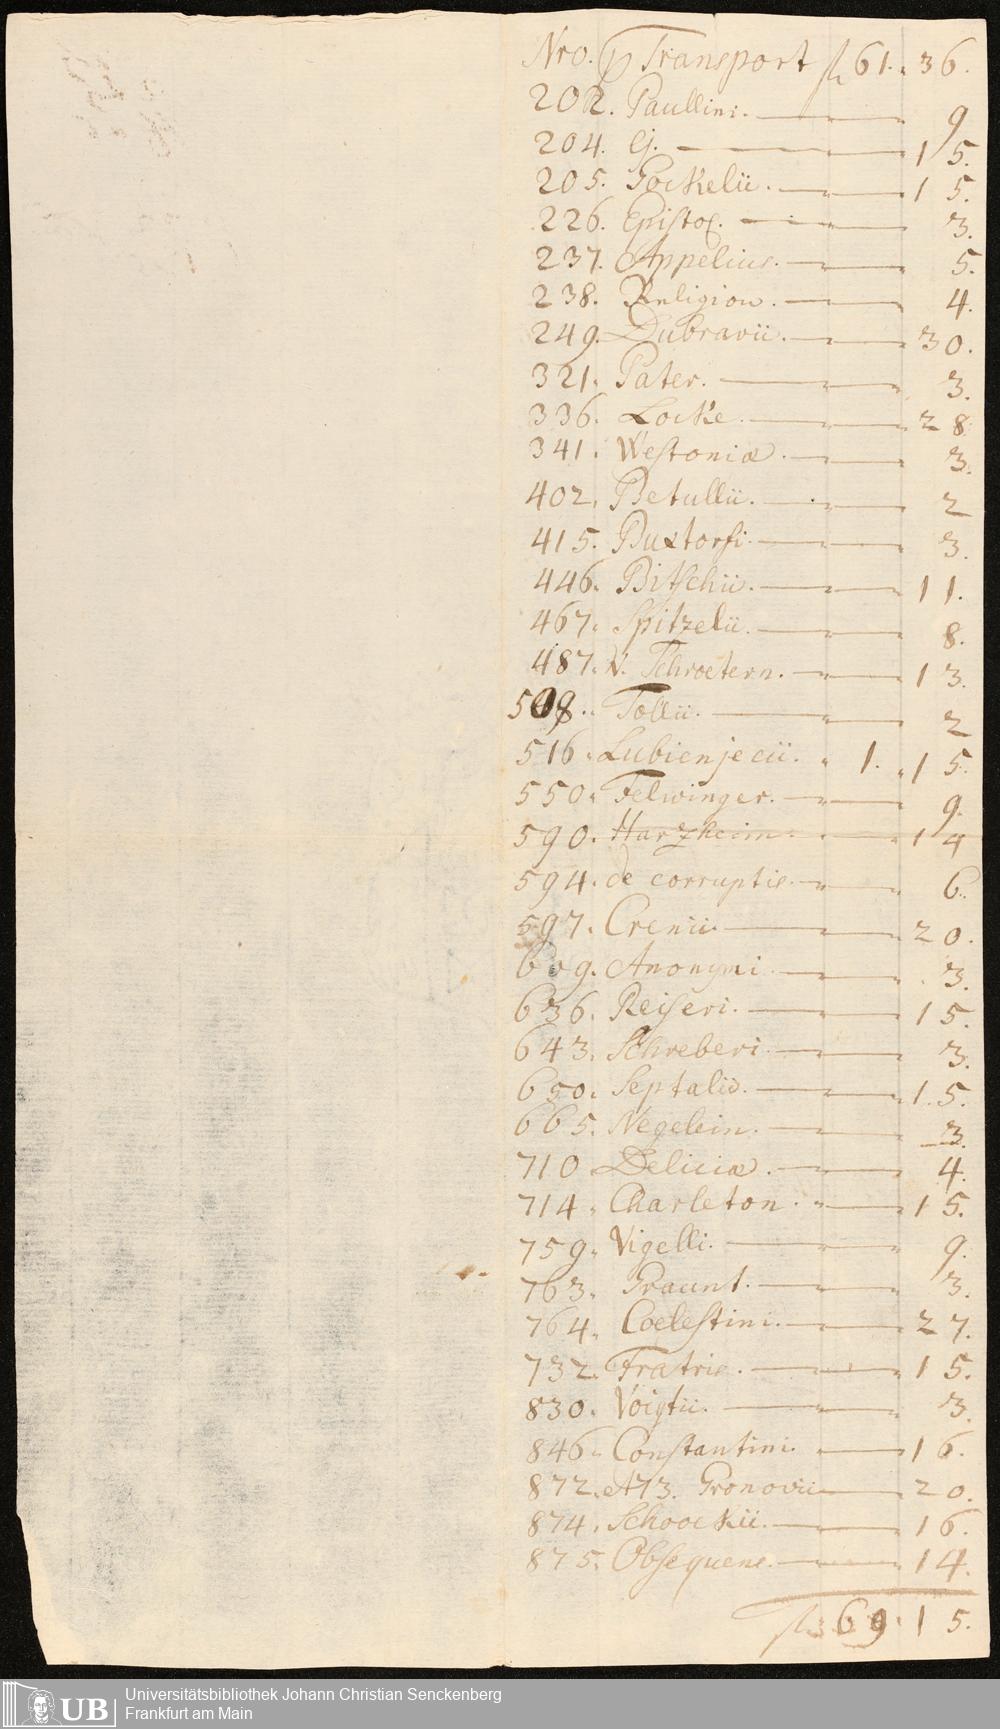 Nro. p Transport fl 61. 36.
202. Paullini. 9
204. Ej. 15.
205. Gockelii. 15.
226. Epistol. 3.
237. Appelius. 5.
238. Religion. 4.
249. Dubravii. 30.
321. Pater. 3.
336. Locke. 28
341. Westoniæ. 3.
402. Betullii. 2
415. Buxtorfi. 3.
446. Bitschii. 11.
467. Spitzelii. 8.
487. V. Schroetern. 13.
508. Tollii. 2
516. Lubienjecii. 1. 15.
550. Felwinger. 9.
590. Harzheim. 14
594. de corruptis. 6.
597. Crenii. 20.
609. Anonymi. 3.
636. Reiseri. 15.
643. Schreberi. 3.
650. Septalii. 15.
665. Negelein. 3.
710 Deliciæ. 4.
714. Charleton. 15.
759. Vigelli. 9.
763. Praunt. 3.
764. Coelestini. 27.
732. Fratris. 15.
830. Voigtii. 3.
846. Constantini. 16.
872. et 73. Gronovii 20.
874. Schoockii. 16.
875. Obsequens. 14.
fl. 69. 15.
UB Universitätsbibliothek Johann Christian Senckenberg
Frankfurt am Main